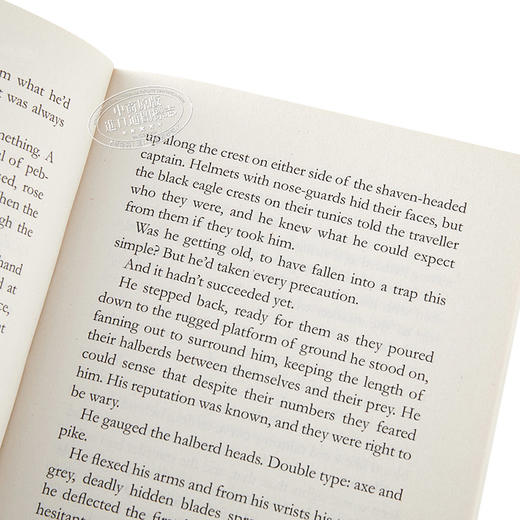 m what he'd
t was always
nething. A
l of peb-
sed, rose
When the
gh the
hand
d at
ce,
out
中商原版
進口通關標誌
up along the crest on either side of the shaven-headed
captain. Helmets with nose-guards hid their faces, but
the black eagle crests on their tunics told the traveller
who they were, and he knew what he could expect
from them if they took him.
Was he getting old, to have fallen into a trap this
simple? But he'd taken every precaution.
And it hadn't succeeded yet.
He stepped back, ready for them as they poured
down to the rugged platform of ground he stood on,
fanning out to surround him, keeping the length of
their halberds between themselves and their prey. He
could sense that despite their numbers they feared
him. His reputation was known, and they were right to
be wary.
He gauged the halberd heads. Double type: axe and
pike.
He flexed his arms and from his wrists his
grey, deadly hidden blades
he deflected the
hesitant